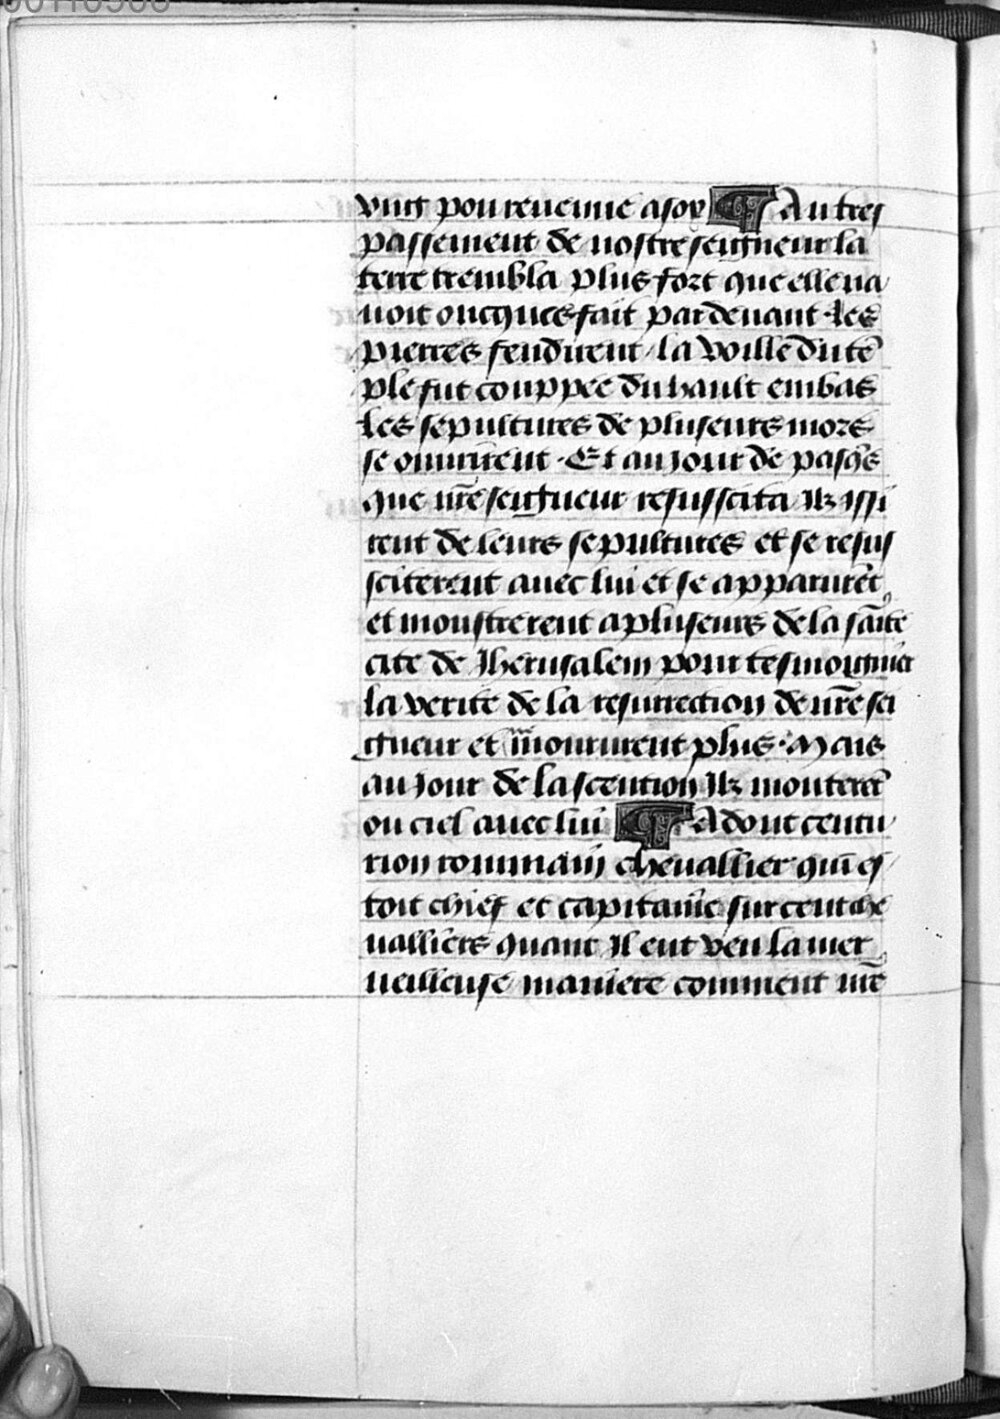 vng pour reuenir a soy ¶ Au tres
passement de nostre seigneur la
terre trembla plus fort que elle na
uoit oncques fait par deuant · les
pierres fendirent / la voille du tē
ple fut couppee du hault em bas
les sepultures de pluseurs mors
se ouurirent · Et au Jour de pasq̄s
que nr̄e seigneur resusscita Ilz issi
rent de leurs sepultures et se resus
sciterent auec lui et se apparurēt
et monstrerent a pluseurs de la sāīte
cite de Jherusalem pour tesmoignier
la verite de la resurrection de nr̄e sei
gneur et moururent plus · Mais
au Jour de lascention Ilz monterēt
ou ciel auec lui ¶ Adont centu
rion rommain cheuallier qui es
toit chief et capitaine sur cent che
ualliers quant Il eut veu la mer
ueilleuse maniere comment nr̄e